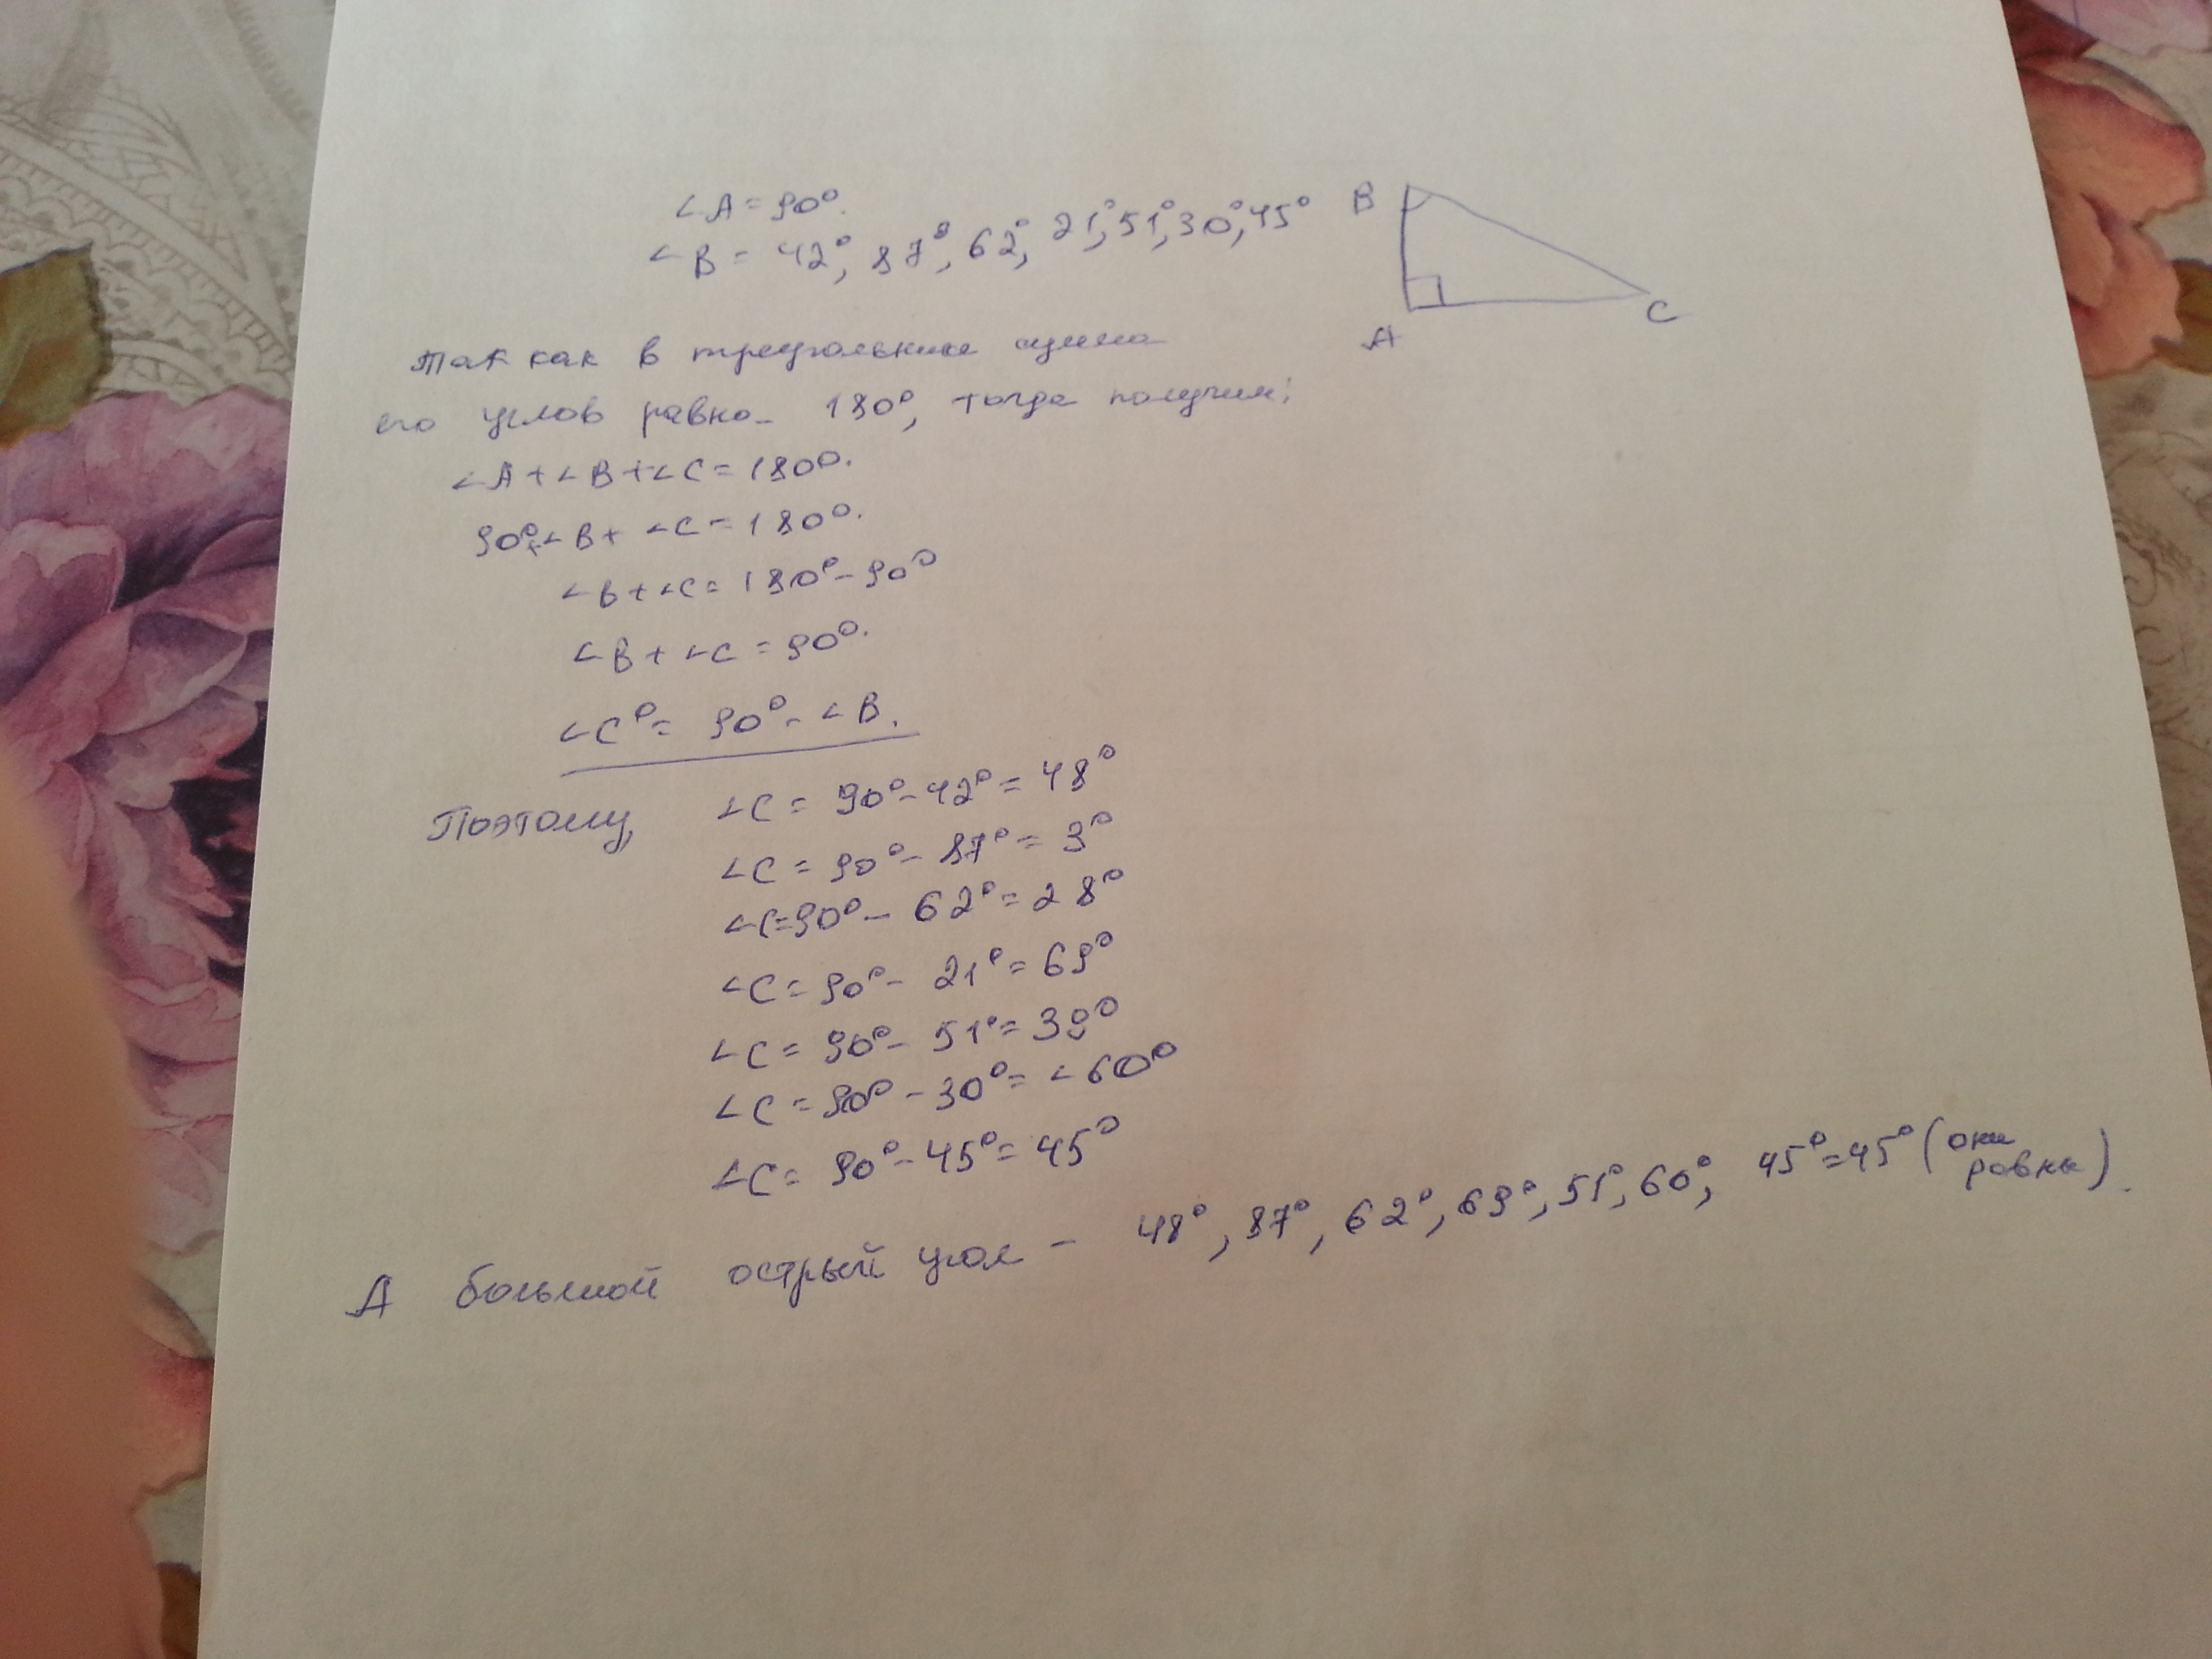 ∠A = 90°.
∠B = 42°, 87°, 62°, 21°, 51°, 30°, 45°
B
A
C
Так как в треугольнике сумма
его углов равно 180°, тогда получим:
∠A + ∠B + ∠C = 180°.
90° + ∠B + ∠C = 180°.
∠B + ∠C = 180° - 90°
∠B + ∠C = 90°.
∠C° = 90° - ∠B.
Поэтому, ∠C = 90° - 42° = 48°
∠C = 90° - 87° = 3°
∠C = 90° - 62° = 28°
∠C = 90° - 21° = 69°
∠C = 90° - 51° = 39°
∠C = 90° - 30° = ∠60°
∠C = 90° - 45° = 45°
А большой острый угол - 48°, 87°, 62°, 69°, 51°, 60°, 45° = 45° (они равны).